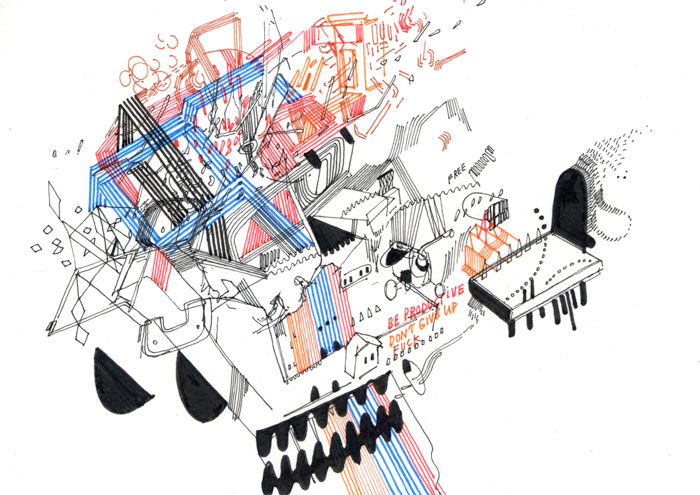 FREE
BE PRODUCTIVE
DON'T GIVE UP
FUCK